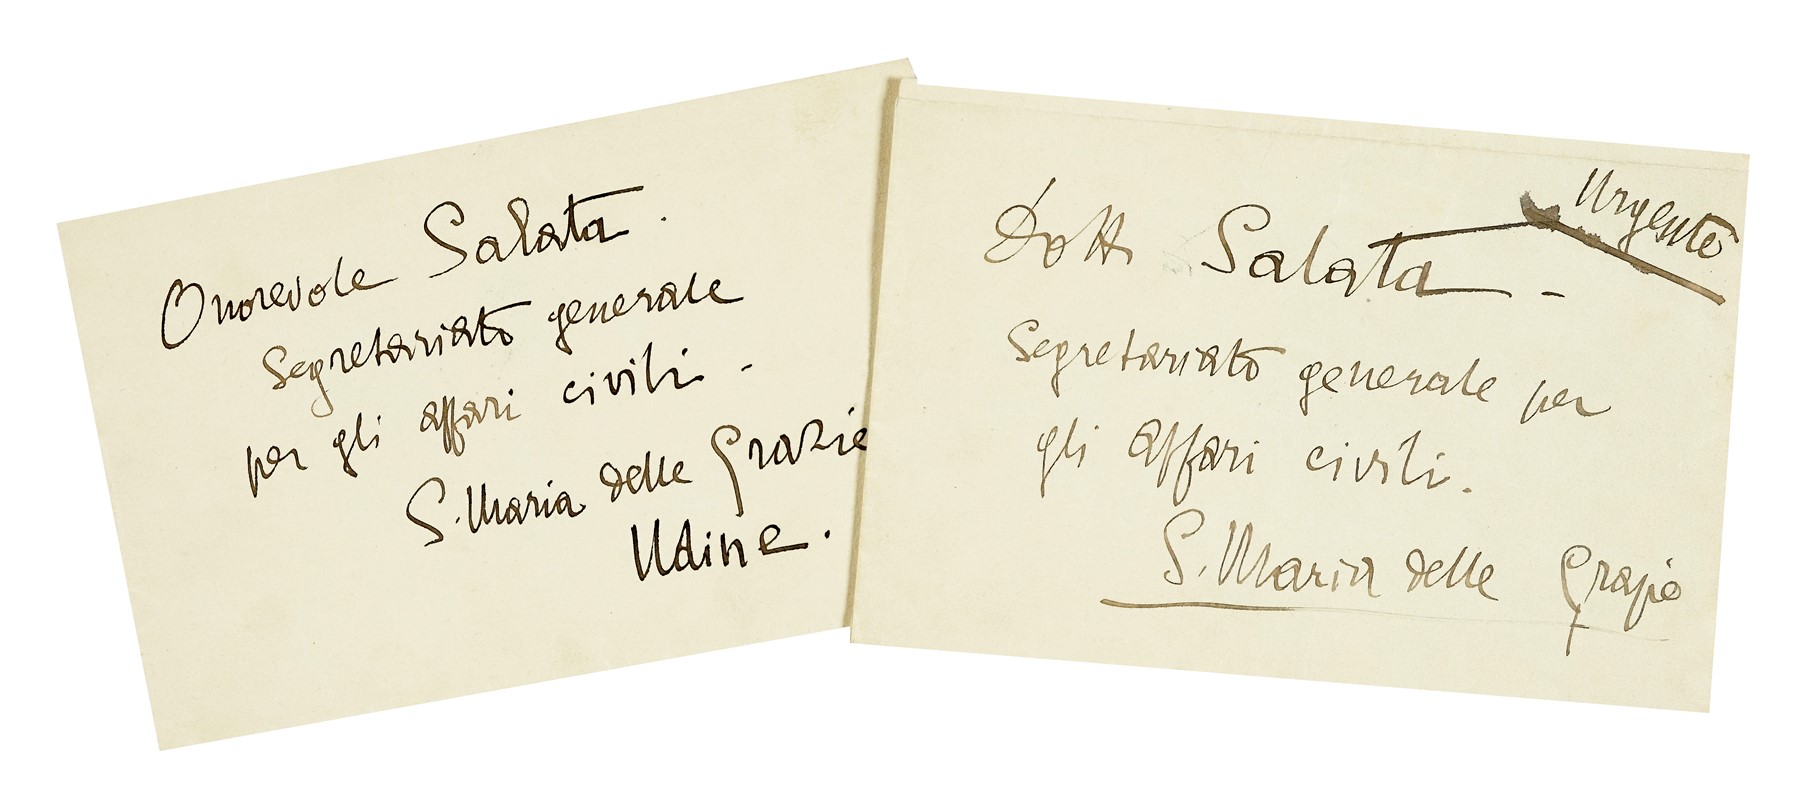 Onorevole Salata.
Segretariato generale
per gli affari civili -
S. Maria delle Grazie
Udine.
Urgente
Dott Salata -
Segretariato generale per
gli affari civili.
S. Maria delle Grazie